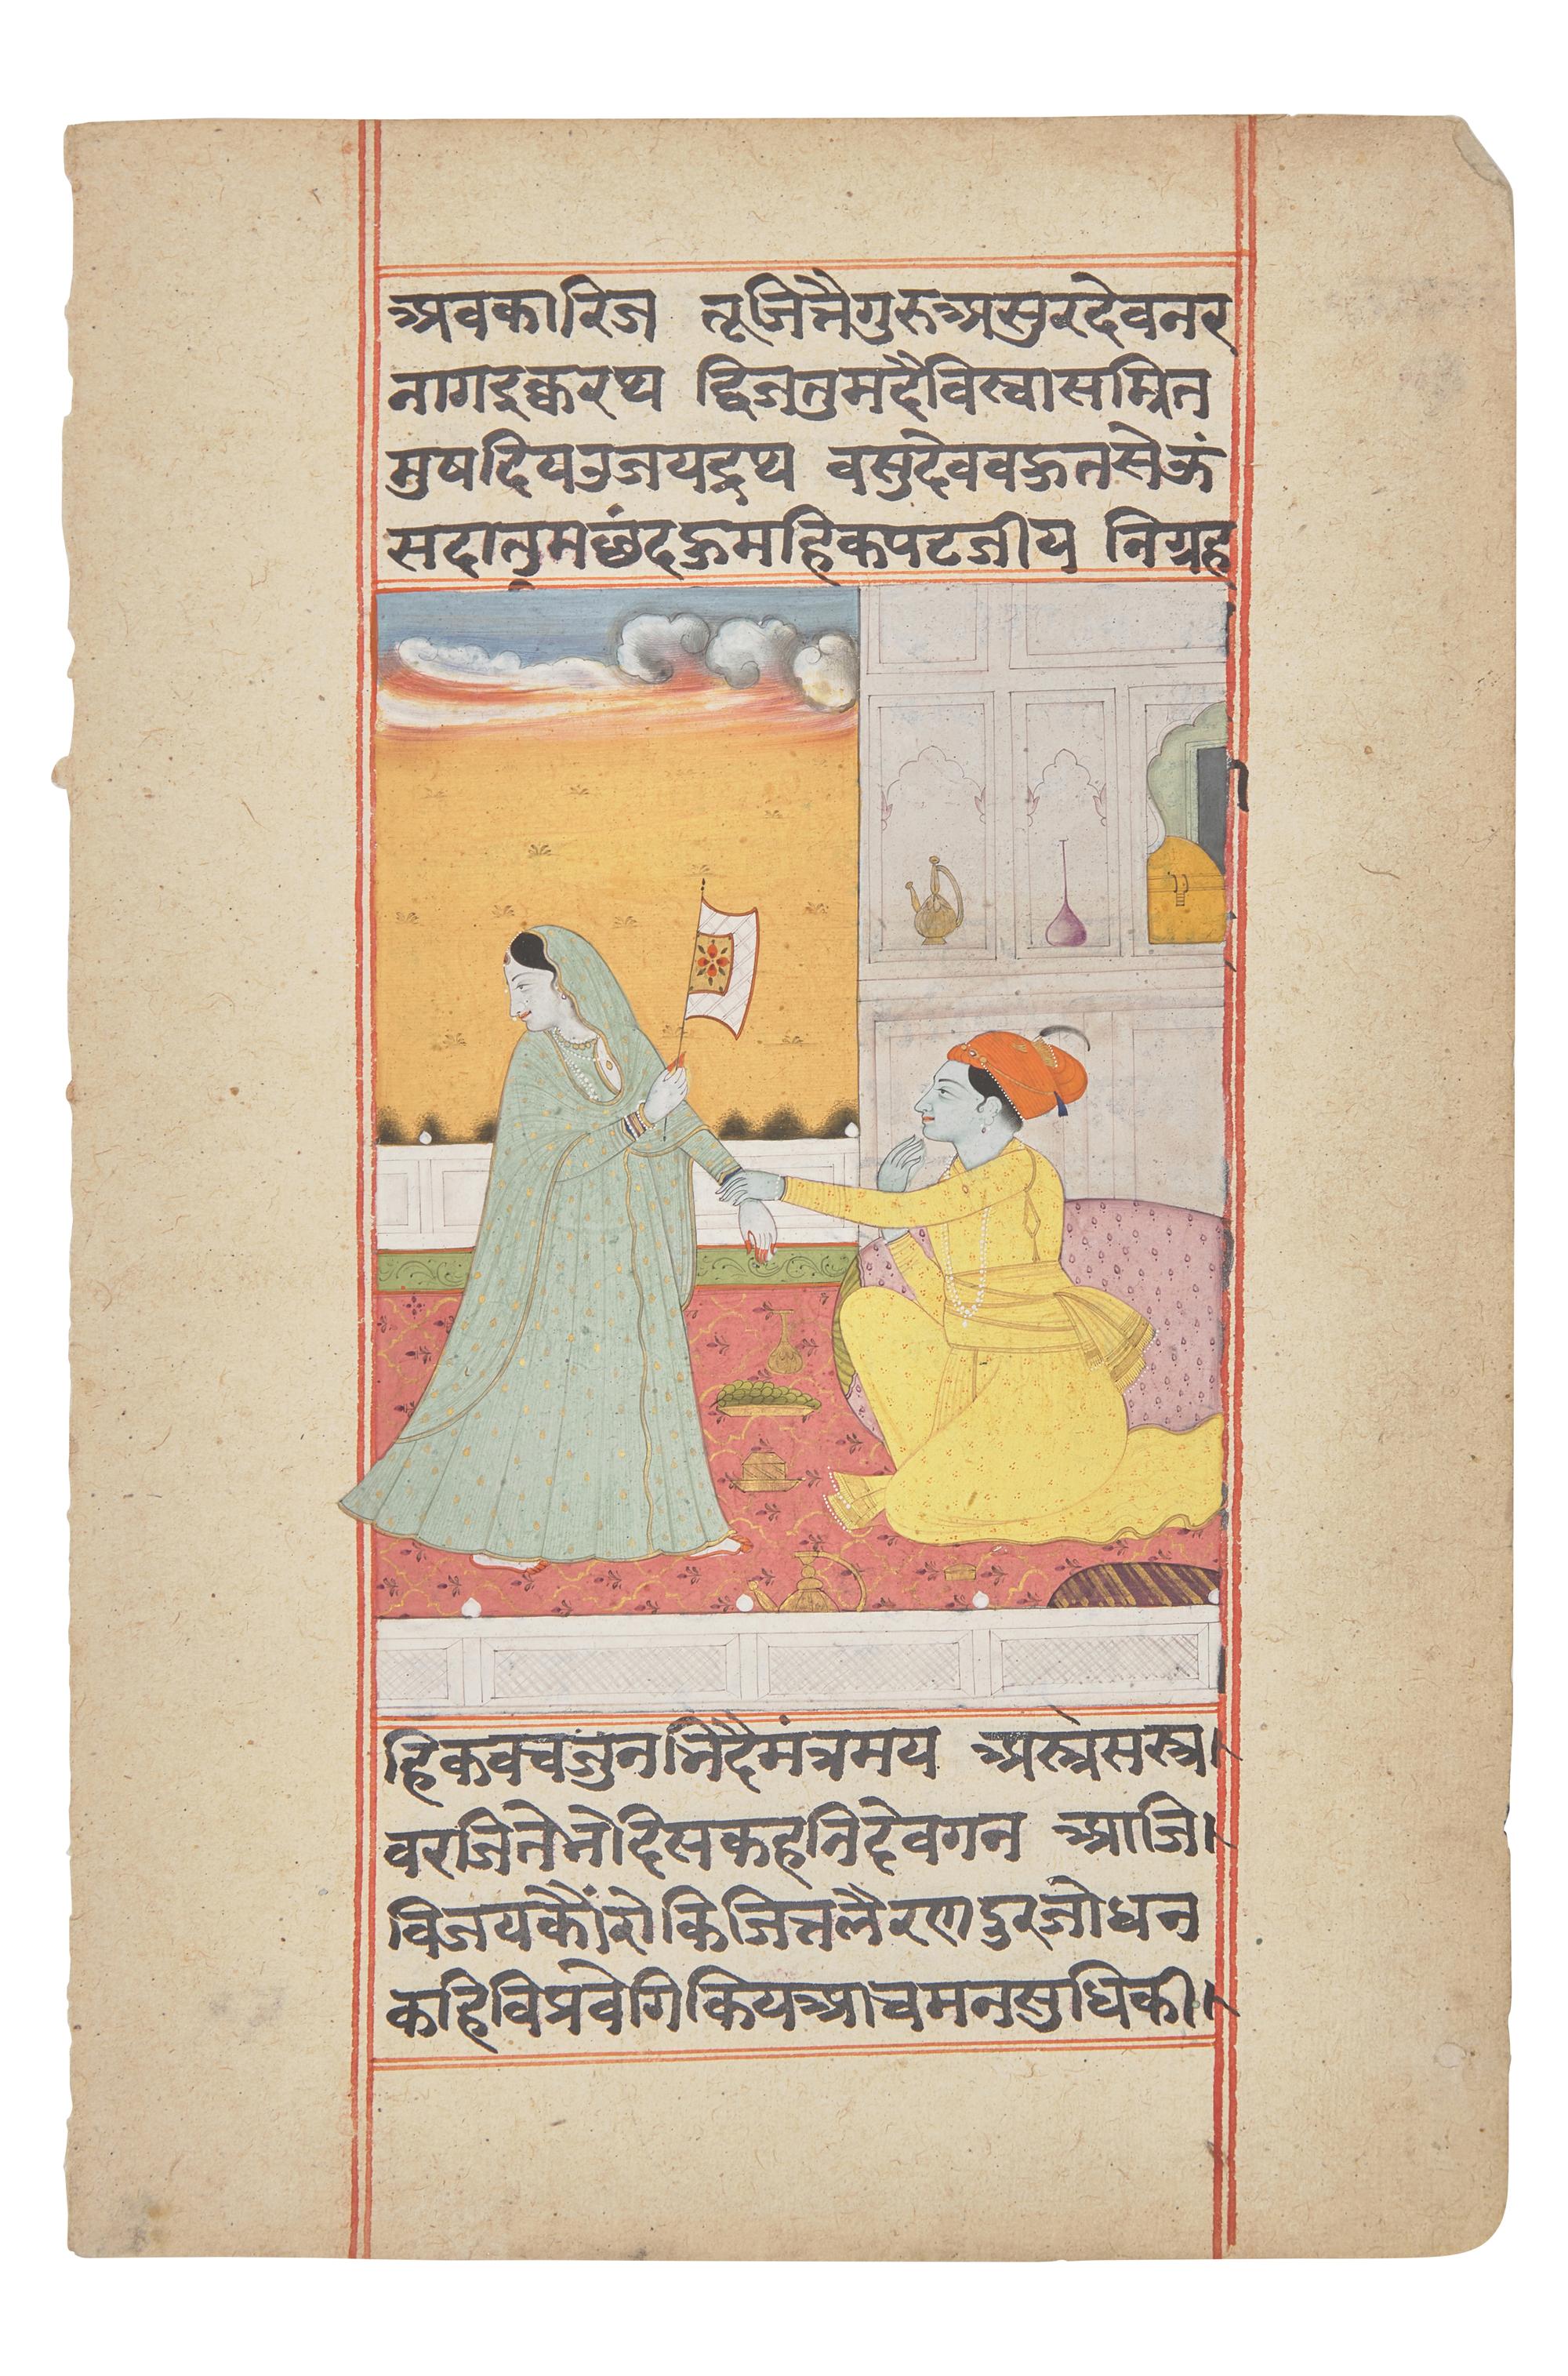 अवकारिज तूजित्तैगुरुअसुरदेवनर
नागदुक्करप्प द्विजतुमदैविस्वासम्रित
मुषदियउजयद्रप्प वसुदेववक्रतसेऊं
सदातुमछंदक्रमहिकपटजीय निग्रह
हिकवचजुनभिदैमंत्रमय अस्त्रेसस्त्र।
वरजितेनोदिसकहनिदेवगन आजि।
विजयकौंरोकिजित्तलैरणदुरजोधन
कहिविप्रवेगिकियआचमनसुधिकी।